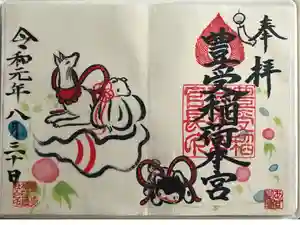 奉拝
豊受稲荷本宮
令和元年
八月三十日